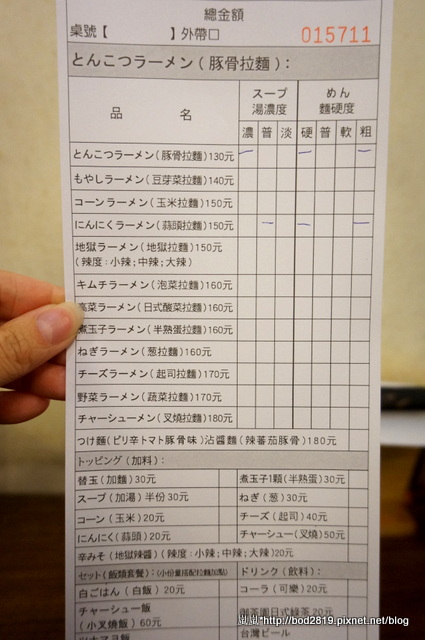 總金額
桌號【 】外帶口 015711
とんこつラーメン(豚骨拉麵):
品 名
スープ
湯濃度
めん
麵硬度
濃 普 淡 硬 普 軟 粗
とんこつラーメン(豚骨拉麵)130元
もやしラーメン(豆芽菜拉麵)140元
コーンラーメン(玉米拉麵)150元
にんにくラーメン(蒜頭拉麵)150元
地獄ラーメン(地獄拉麵)150元
(辣度:小辣;中辣;大辣)
キムチラーメン(泡菜拉麵)160元
高菜ラーメン(日式酸菜拉麵)160元
煮玉子ラーメン(半熟蛋拉麵)160元
ねぎラーメン(葱拉麵)160元
チーズラーメン(起司拉麵)170元
野菜ラーメン(蔬菜拉麵)170元
チャーシューメン(叉燒拉麵)180元
つけ麵(ピリ辛トマト豚骨味)沾醬麵(辣蕃茄豚骨)180元
トッピング(加料):
替玉(加麵)30元 煮玉子1顆(半熟蛋)30元
スープ(加湯)半份30元 ねぎ(葱)30元
コーン(玉米)20元 チーズ(起司)40元
にんにく(蒜頭)20元 チャーシュー(叉燒)50元
辛みそ(地獄辣醬)(辣度:小辣;中辣;大辣)20元
セット(飯類套餐):(小份量搭配拉麵加點) ドリンク(飲料):
白ごはん(白飯)20元 コーラ(可樂)20元
チャーシュー飯
(小叉燒飯) 60元
御茶園日式綠茶20元
ツナマヨ飯 台灣ビール
凪凪*http://bod2819.pixnet.net/blog